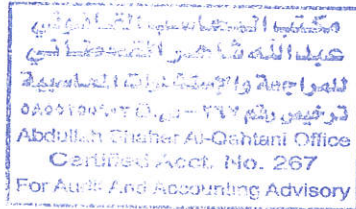 مكتب المحاسب القانوني
عبدالله ظاهر القحطاني
للمراجعة والإستشارات المحاسبية
ترخيص رقم ٢٦٧
Abdullah Dhaher Al-Qahtani Office
Certified Acct. No. 267
For Audit And Accounting Advisory